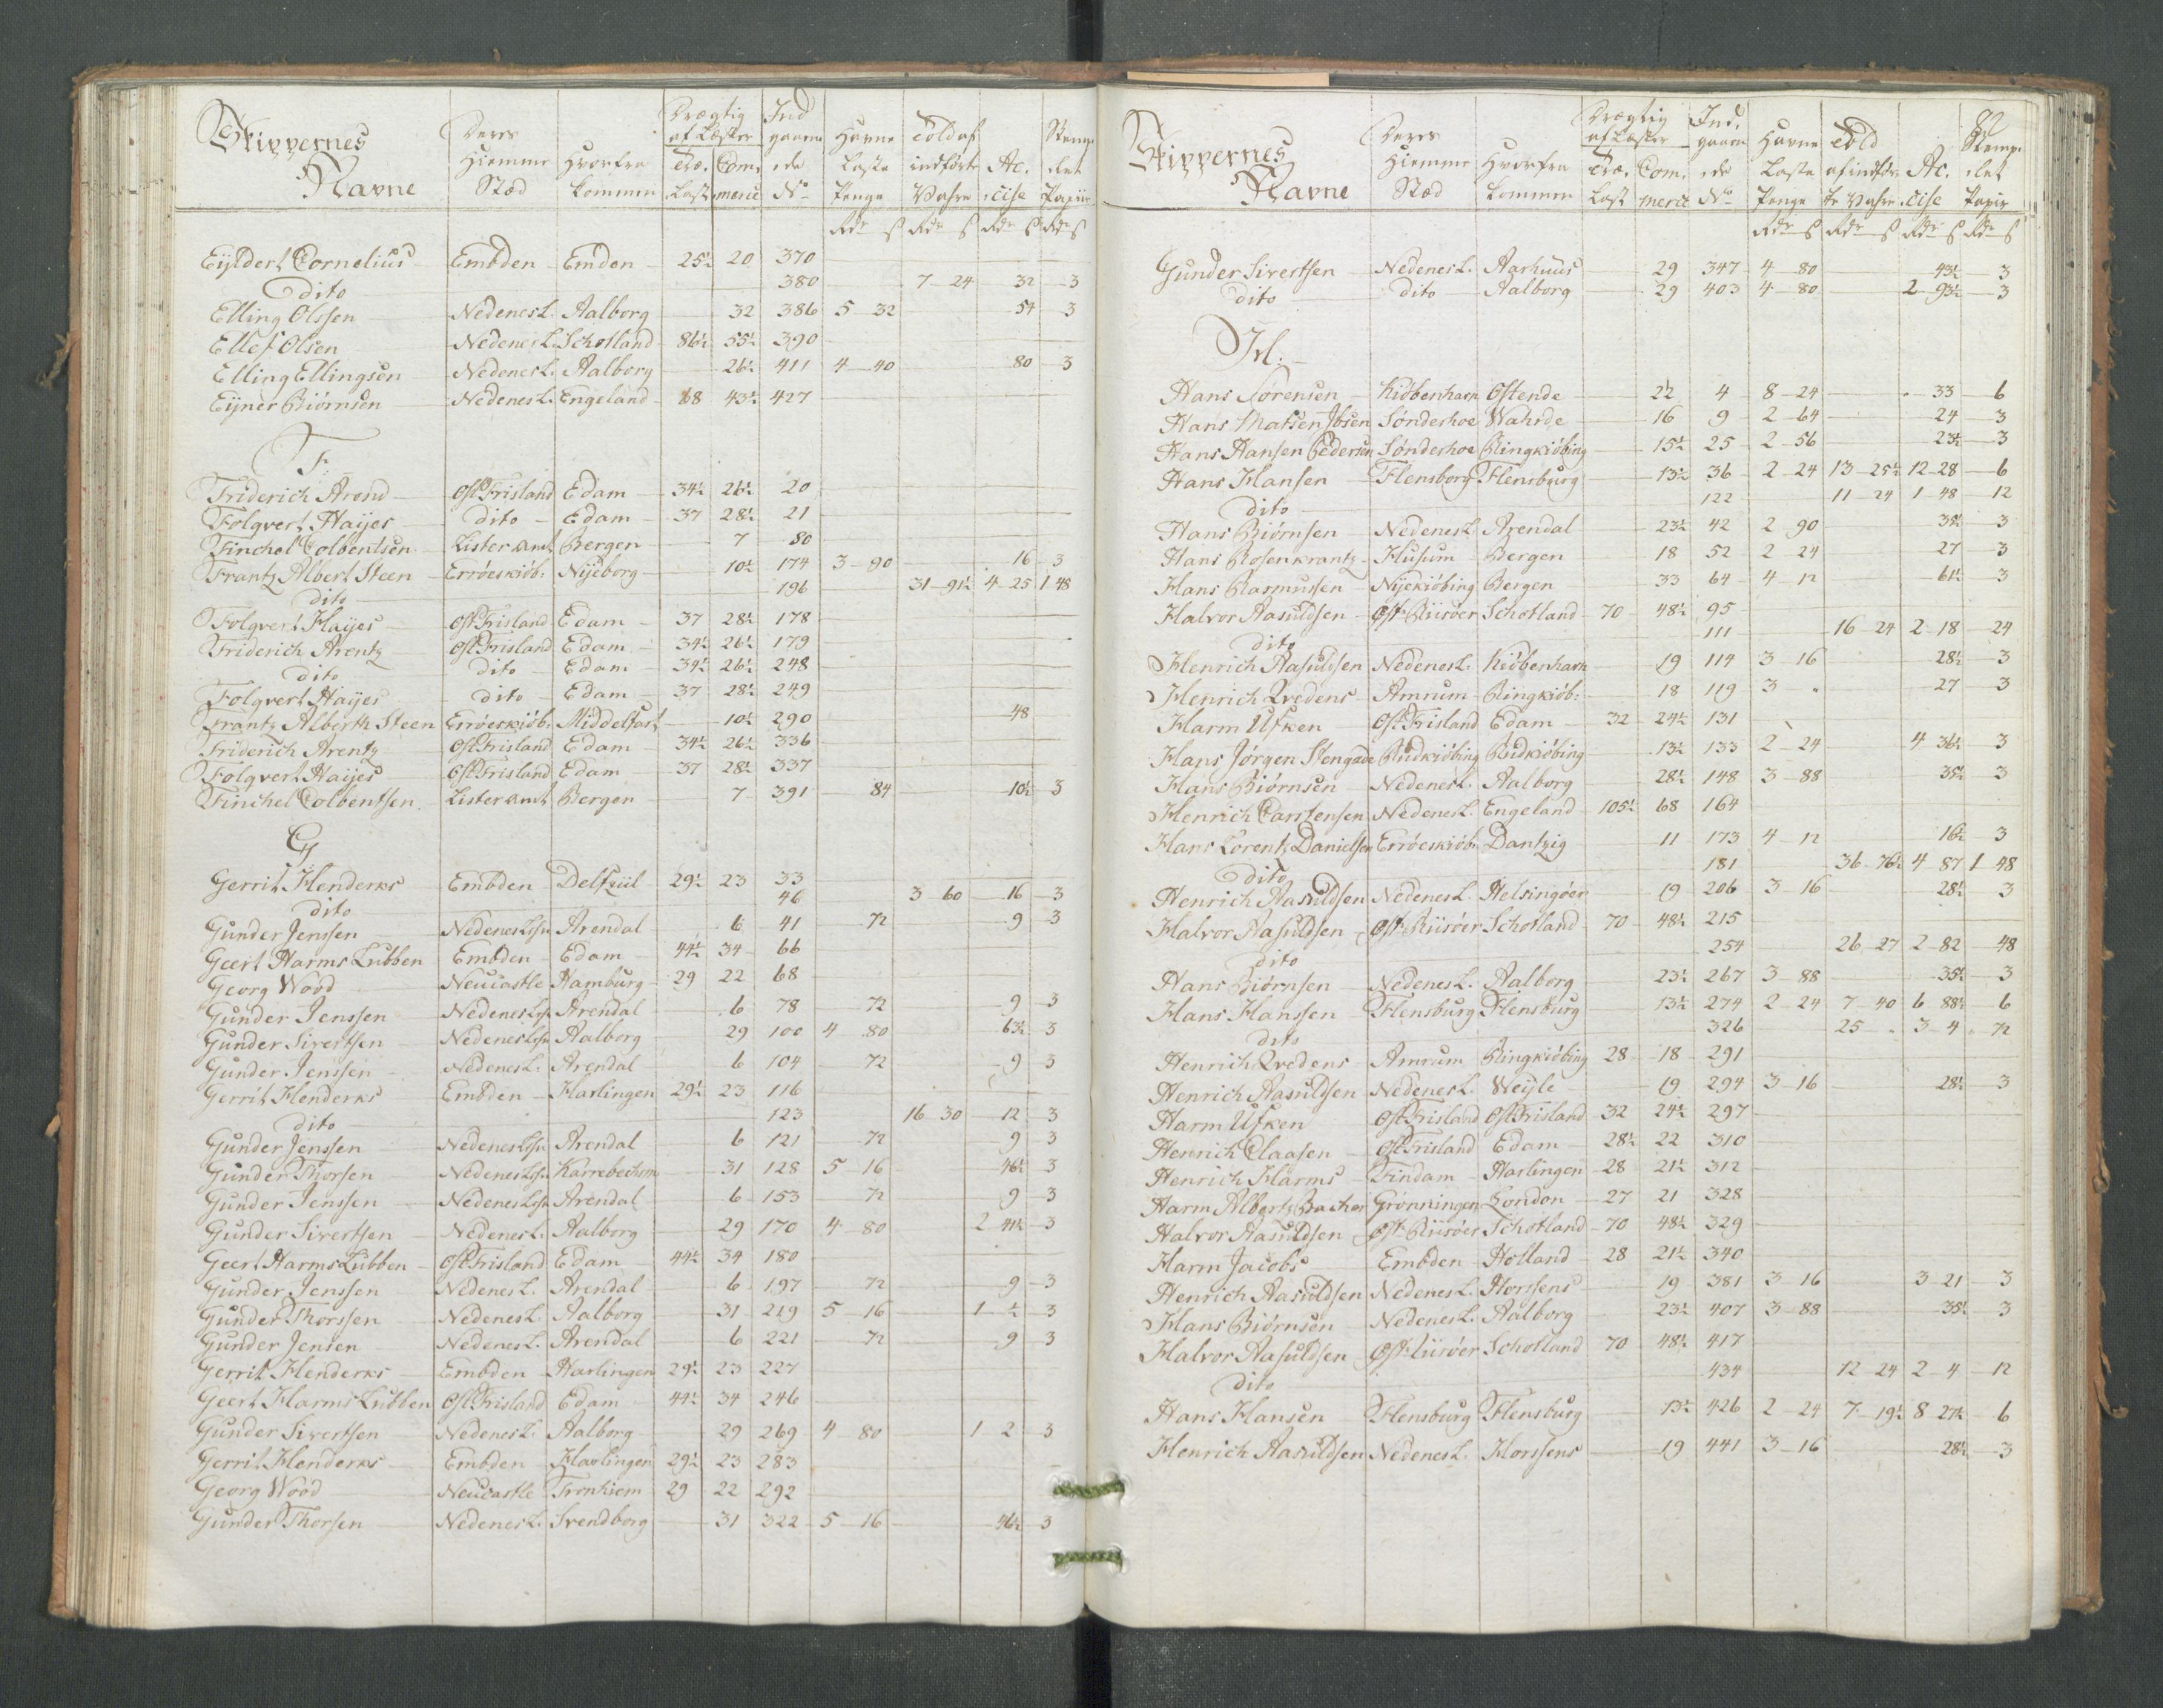 Skippernes Navne | Deres Hiemme Stæd | Hvorfra kommen | Drægtig af Læster Træ. Last | Com. merce | Ind gaaende No | Havne Laste Penge | Told af indførte Vahre | Ac. cise | Stemplet Papiir
Rdr ß Rdr ß Rdr ß Rdr ß
Eyldert Cornelius Embden Emden 25½ 20 370
dito 380 7 24 32 3
Elling Olssen Nedenes L. Aalborg 32 386 5 32 54 3
Ellef Olsen Nedenes L. Schotland 86½ 55½ 390
Elling Ellingsen Nedenes L. Aalborg 26½ 411 4 40 80 3
Eyner Biørnsen Nedenes L. Engeland 68 43½ 427
F.
Friderich Arend Ost Frisland Edam 34½ 26½ 20
Folqvert Hayes dito Edam 37 28½ 21
Finchel Colbentsen Lister Amt Bergen 7 80
Frantz Albert Steen Errøeskiøb: Nyeborg 10½ 174 3 90 16 3
dito 196 31 91½ 4 25 1 48
Folqvert Hayes Ost Frisland Edam 37 28½ 178
Friderich Arentz Ost Frisland Edam 34½ 26½ 179
dito dito Edam 34½ 26½ 248
Folqvert Hayes dito Edam 37 28½ 249
Frantz Alberth Steen Errøeskiøb: Middelfart 10½ 290 48
Friderich Arentz Ost Frisland Edam 34½ 26½ 336
Folqvert Hayes Ost Frisland Edam 37 28½ 337
Finchel Colbentsen Lister Amt Bergen 7 391 84 10½ 3
G
Gerrit Henderks Embden Delfzül 29½ 23 33
dito 46 3 60 16 3
Gunder Jenssen Nedenes Lehn Arendal 6 41 72 9 3
Geert Harms Lubben Embden Edam 44½ 34 66
Georg Wood Neucastle Hamburg 29 22 68
Gunder Jenssen Nedenes Lehn Arendal 6 78 72 9 3
Gunder Sivertsen Nedenes Lehn Aalborg 29 100 4 80 63½ 3
Gunder Jenssen Nedenes L. Arendal 6 104 72 9 3
Gerrit Henderks Embden Harlingen 29½ 23 116
dito 123 16 30 12 3
Gunder Jenssen Nedenes Lehn Arendal 6 121 72 9 3
Gunder Thorsen Nedenes Lehn Karrebechsm 31 128 5 16 46½ 3
Gunder Jenssen Nedenes Lehn Arendal 6 153 72 9 3
Gunder Sivertsen Nedenes L. Aalborg 29 170 4 80 2 41½ 3
Geert Harms Lubben Ost Frisland Edam 44½ 34 180
Gunder Jenssen Nedenes L. Arendal 6 197 72 9 3
Gunder Thorssen Nedenes L. Aalborg 31 219 5 16 1 ½ 3
Gunder Jensen Nedenes L. Arendal 6 221 72 9 3
Gerrit Henderks Embden Harlingen 29½ 23 227
Geert Harms Lubben Ost Frisland Edam 44½ 34 246
Gunder Sivertsen Nedenes L. Aalborg 29 269 4 80 1 2 3
Gerrit Henderks Embden Harlingen 29½ 23 283
Georg Wood Neucastle Tronhiem 29 22 292
Gunder Thorsen Nedenes L. Svendborg 31 322 5 16 46½ 3
Skippernes Navne | Deres Hiemme Stæd | Hvorfra kommen | Drægtig af Læster Træ. Last | Com. merce | Ind. gaaende No | Havne Laste Penge | Told af indførte Vahre | Ac. cise | Stemplet Papir
Rdr ß Rdr ß Rdr ß Rdr ß
Gunder Sivertsen Nedenes L. Aarhuus 29 347 4 80 43½ 3
dito dito Aalborg 29 403 4 80 2 93½ 3
H.
Hans Sørensen Kiøbenhavn Ostende 22 4 8 24 33 6
Hans Matsen Ibsen Sønderhoe Wahrde 16 9 2 64 24 3
Hans Hansen Pedersen Sønderhoe Ringkiøbing 15½ 25 2 56 23½ 3
Hans Hansen Flensborg Flensburg 13½ 36 2 24 13 25½ 12 28 6
dito 122 11 24 1 48 12
Hans Biørnsen Nedenes L. Arendal 23½ 42 2 90 35½ 3
Hans Rosenkrantz Husum Bergen 18 52 2 24 27 3
Hans Rasmussen Nyekiøbing Bergen 33 64 4 12 61½ 3
Halvor Aasuldsen Øst Riisøer Schotland 70 48½ 95
dito 111 16 24 2 18 24
Henrich Aasuldsen Nedenes L. Kiøbenhavn 19 114 3 16 28½ 3
Henrich Qvedens Amrum Ringkiøb: 18 119 3 " 27 3
Harm Ufken Ost Frisland Edam 32 24½ 131
Hans Jørgen Stengade Rudkiøbing Rudkiøbing 13½ 133 2 24 4 36½ 3
Hans Biørnsen Nedenes L. Aalborg 28½ 148 3 88 35½ 3
Henrich Carstensen Nedenes L. Engeland 105½ 68 164
Hans Lorentz Danielsen Errøeskiøb: Dantzig 11 173 4 12 16½ 3
dito 181 36 76½ 4 87 1 48
Henrich Aasuldsen Nedenes L. Helsingøer 19 206 3 16 28½ 3
Halvor Aasuldsen Øst Riisøer Schotland 70 48½ 215
dito 254 26 27 2 82 48
Hans Biørnsen Nedenes L. Aalborg 23½ 267 3 88 35½ 3
Hans Hanssen Flensburg Flensburg 13½ 274 2 24 7 40 6 88½ 6
dito 326 25 " 3 4 72
Henrich Qvedens Amrum Ringkiøbing 28 18 291
Henrich Aasuldsen Nedenes L. Weyle 19 294 3 16 28½ 3
Harm Ufken Ost Frisland Ost Frisland 32 24½ 297
Henrich Claasen Ost Frisland Edam 28½ 22 310
Henrich Harms Findam Harlingen 28 21½ 312
Harm Albertz Grønningen London 27 21 328
Halvor Aasuldsen Øst Riisøer Schotland 70 48½ 329
Harm Jacobs Embden Holland 28 21½ 340
Henrich Aasuldsen Nedenes L. Horssens 19 381 3 16 3 21 3
Hans Biørnsen Nedenes L. Aalborg 23½ 407 3 88 35½ 3
Halvor Aasuldsen Øst Riisøer Schotland 70 48½ 417
dito 434 12 24 2 4 12
Hans Hansen Flensburg Flensburg 13½ 426 2 24 7 19½ 8 27½ 6
Henrich Aasuldsen Nedenes L. Horssens 19 441 3 16 28½ 3